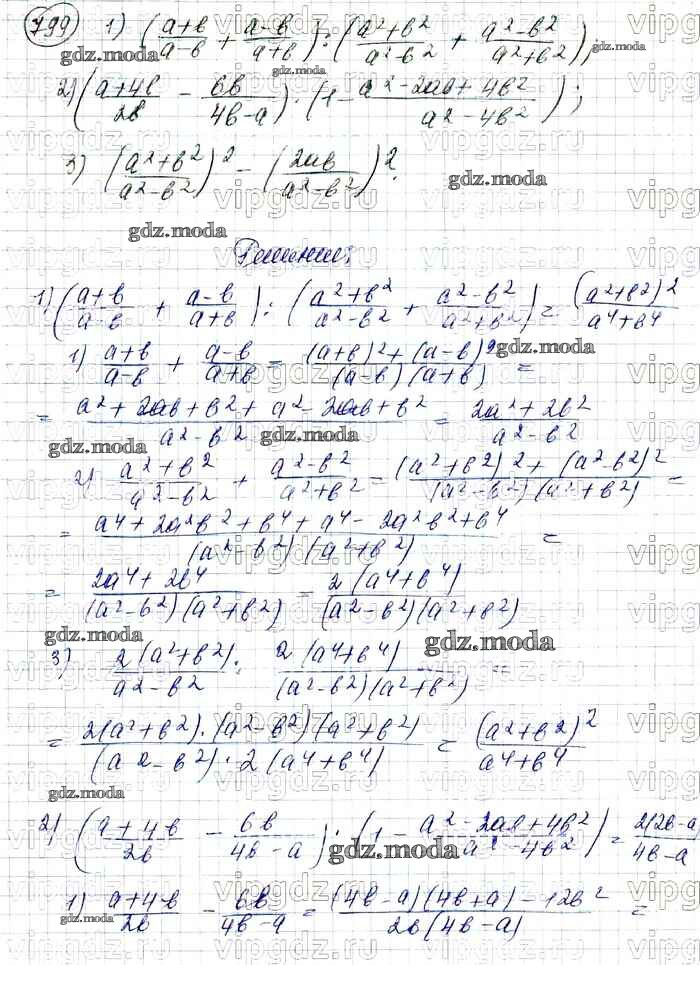 799) 1) (a+b/a-b + a-b/a+b) : (a²+b²/a²-b² + a²-b²/a²+b²);
2) (a+4b/2b - 6b/4b-a) : (1 - a²-2ab+4b²/a²-4b²);
3) (a²+b²/a²-b²)² - (2ab/a²-b²)².
Решение:
1) (a+b/a-b + a-b/a+b) : (a²+b²/a²-b² + a²-b²/a²+b²) = (a²+b²)²/a⁴+b⁴
1) a+b/a-b + a-b/a+b = (a+b)²+(a-b)²/(a-b)(a+b) =
= a²+2ab+b²+a²-2ab+b²/a²-b² = 2a²+2b²/a²-b²
2) a²+b²/a²-b² + a²-b²/a²+b² = (a²+b²)²+(a²-b²)²/(a²-b²)(a²+b²) =
= a⁴+2a²b²+b⁴+a⁴-2a²b²+b⁴/(a²-b²)(a²+b²) =
= 2a⁴+2b⁴/(a²-b²)(a²+b²) = 2(a⁴+b⁴)/(a²-b²)(a²+b²)
3) 2(a²+b²)/a²-b² : 2(a⁴+b⁴)/(a²-b²)(a²+b²) =
= 2(a²+b²)·(a²-b²)(a²+b²)/(a²-b²)·2(a⁴+b⁴) = (a²+b²)²/a⁴+b⁴
2) (a+4b/2b - 6b/4b-a) : (1 - a²-2ab+4b²/a²-4b²) = 2(2b-a)/4b-a
1) a+4b/2b - 6b/4b-a = (4b-a)(4b+a)-12b²/2b(4b-a) =
gdz.moda
vipgdz.ru